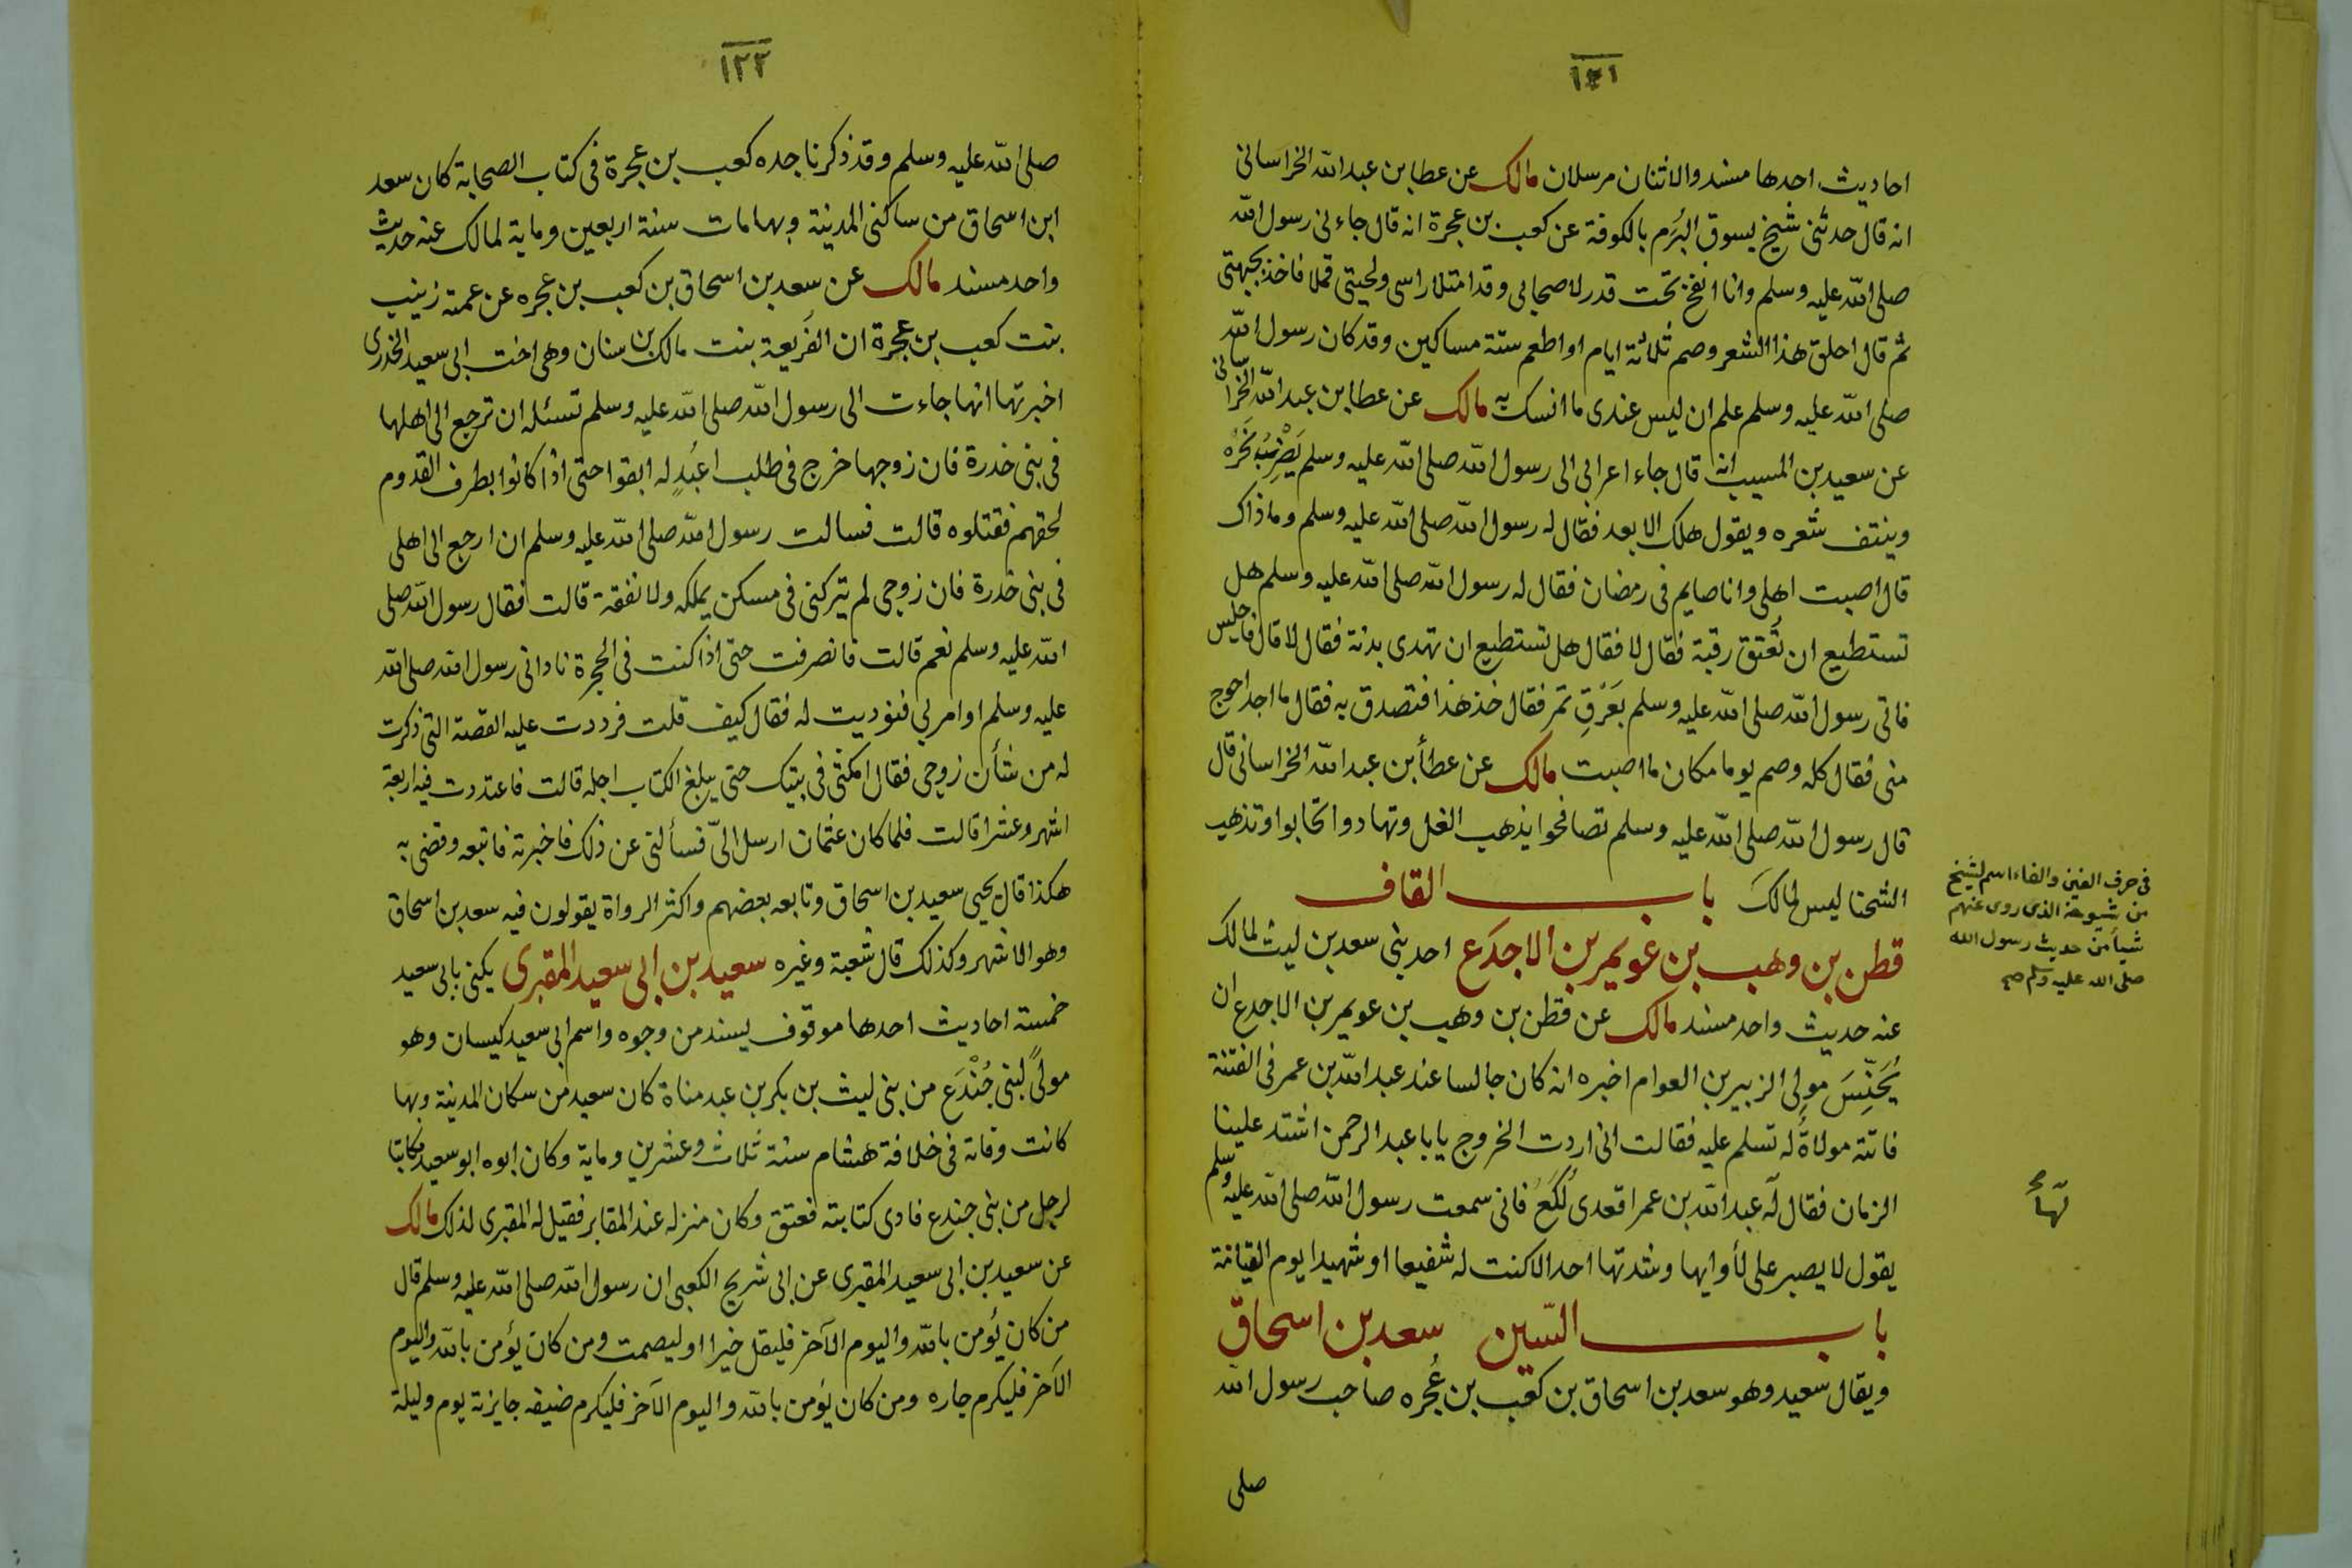 ١٢١
احاديث احدها مسند والاثنان مرسلان مالك عن عطا بن عبد الله الخراسانى
انه قال حدثنى شيخ بسوق البُرَم بالكوفة عن كعب بن عجرة انه قال جاءنى رسول الله
صلى الله عليه وسلم وانا انفخ تحت قدر لاصحابى وقد امتلا راسى ولحيتى قملا فاخذ بجبهتى
ثم قال احلق هذا الشعر وصم ثلاثة ايام او اطعم ستة مساكين وقد كان رسول الله
صلى الله عليه وسلم علم ان ليس عندى ما انسك به مالك عن عطا بن عبد الله الخراسانى
عن سعيد بن المسيب انه قال جاء اعرابى الى رسول الله صلى الله عليه وسلم يَضْرِبُ نَحْرَهُ
وينتف شعره ويقول هلك الابعد فقال له رسول الله صلى الله عليه وسلم وما ذاك
قال اصبت اهلى وانا صايم فى رمضان فقال له رسول الله صلى الله عليه وسلم هل
تستطيع ان تعتق رقبة فقال لا فقال هل تستطيع ان تهدى بدنة فقال لا قال فاجلس
فاتى رسول الله صلى الله عليه وسلم بعَرَقِ تمر فقال خذ هذا فتصدق به فقال ما اجد احوج
منى فقال كله وصم يوما مكان ما اصبت مالك عن عطأ بن عبد الله الخراسانى قال
قال رسول الله صلى الله عليه وسلم تصافحوا يذهب الغل وتهادوا تحابوا وتذهب
الشحنا ليس لمالك باب القاف
فى حرف الغين والفاء اسم لشيخ
من شيوخه الذى روى عنهم
شيأ من حديث رسول الله
صلى الله عليه وسلم صح
قطن بن وهب بن عويمر بن الاجدع احد بنى سعد بن ليث لمالك
عنه حديث واحد مسند مالك عن قطن بن وهب بن عويمر بن الاجدع ان
يُحَنِّسَ مولى الزبير بن العوام اخبره انه كان جالسا عند عبد الله بن عمر فى الفتنة
فاتته مولاةٌ له تسلم عليه فقالت انى اردت الخروج يابا عبد الرحمن اشتد علينا
الزمان فقال له عبد الله بن عمر اقعدى لُكَعُ فانى سمعت رسول الله صلى الله عليه وسلم
لها
يقول لا يصبر على لأوايها وشدتها احد الا كنت له شفيعا او شهيدا يوم القيامة
باب السّين سعد بن اسحاق
ويقال سعيد وهو سعد بن اسحاق بن كعب بن عُجره صاحب رسول الله
صلى
١٢٢
صلى الله عليه وسلم وقد ذكرنا جده كعب بن عجرة فى كتاب الصحابة كان سعد
ابن اسحاق من ساكنى المدينة وبها مات سنة اربعين وماية لمالك عنه حديث
واحد مسند مالك عن سعد بن اسحاق بن كعب بن عجره عن عمته زينب
بنت كعب بن عجرة ان الفُريعة بنت مالك بن سنان وهى اخت ابى سعيد الخدرى
اخبرتها انها جاءت الى رسول الله صلى الله عليه وسلم تسئله ان ترجع الى اهلها
فى بنى خدرة فان زوجها خرج فى طلب اعبُدٍ له ابقوا حتى اذا كانوا بطرف القدوم
لحقهم فقتلوه قالت فسالت رسول الله صلى الله عليه وسلم ان ارجع الى اهلى
فى بنى خدرة فان زوجى لم يتركنى فى مسكن يملكه ولا نفقة قالت فقال رسول الله صلى
الله عليه وسلم نعم قالت فانصرفت حتى اذا كنت فى الحجرة نادانى رسول الله صلى الله
عليه وسلم او امر بى فنوديت له فقال كيف قلت فرددت عليه القصة التى ذكرت
له من شأن زوجى فقال امكثى فى بيتك حتى يبلغ الكتاب اجله قالت فاعتددت فيه اربعة
اشهر وعشرا قالت فلما كان عثمان ارسل الىّ فسألنى عن ذلك فاخبرته فاتبعه وقضى به
هكذا قال يحيى سعيد بن اسحاق وتابعه بعضهم واكثر الرواة يقولون فيه سعد بن اسحاق
وهو الاشهر وكذلك قال شعبة وغيره سعيد بن ابى سعيد المقبرى يكنى بابى سعيد
خمسة احاديث احدها موقوف يسند من وجوه واسم ابى سعيد كيسان وهو
مولىً لبنى جُنْدَع من بنى ليث بن بكر بن عبد مناة كان سعيد من سكان المدينة وبها
كانت وفاته فى خلافة هشام سنة ثلاث وعشرين وماية وكان ابوه ابو سعيد مكاتبا
لرجل من بنى جندع فادى كتابته فعتق وكان منزله عند المقابر فقيل له المقبرى لذلك مالك
عن سعيد بن ابى سعيد المقبرى عن ابى شريح الكعبى ان رسول الله صلى الله عليه وسلم قال
من كان يؤمن بالله واليوم الآخر فليقل خيرا او ليصمت ومن كان يؤمن بالله واليوم
الآخر فليكرم جاره ومن كان يؤمن بالله واليوم الآخر فليكرم ضيفه جايزته يوم وليلة